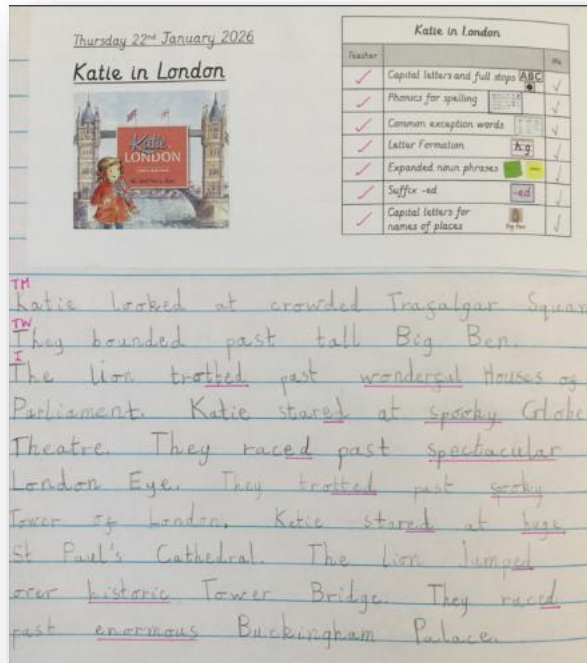 Thursday 22nd January 2026
Katie in London
Katie
in
LONDON
Katie in London
Teacher
Me
Capital letters and full stops ABC
Phonics for spelling
Common exception words
Letter Formation h,g
Expanded noun phrases
Suffix -ed -ed
Capital letters for
names of places
Big Ben
TM
Katie looked at crowded Trafalgar Square
TW
They bounded past tall Big Ben.
I
The lion trotted past wonderful Houses of
Parliament. Katie stared at spooky Globe
Theatre. They raced past spectacular
London Eye. They trotted past spooky
Tower of London. Katie stared at huge
St Paul's Cathedral. The lion Jumped
over historic Tower Bridge. They raced
past enormous Buckingham Palace.